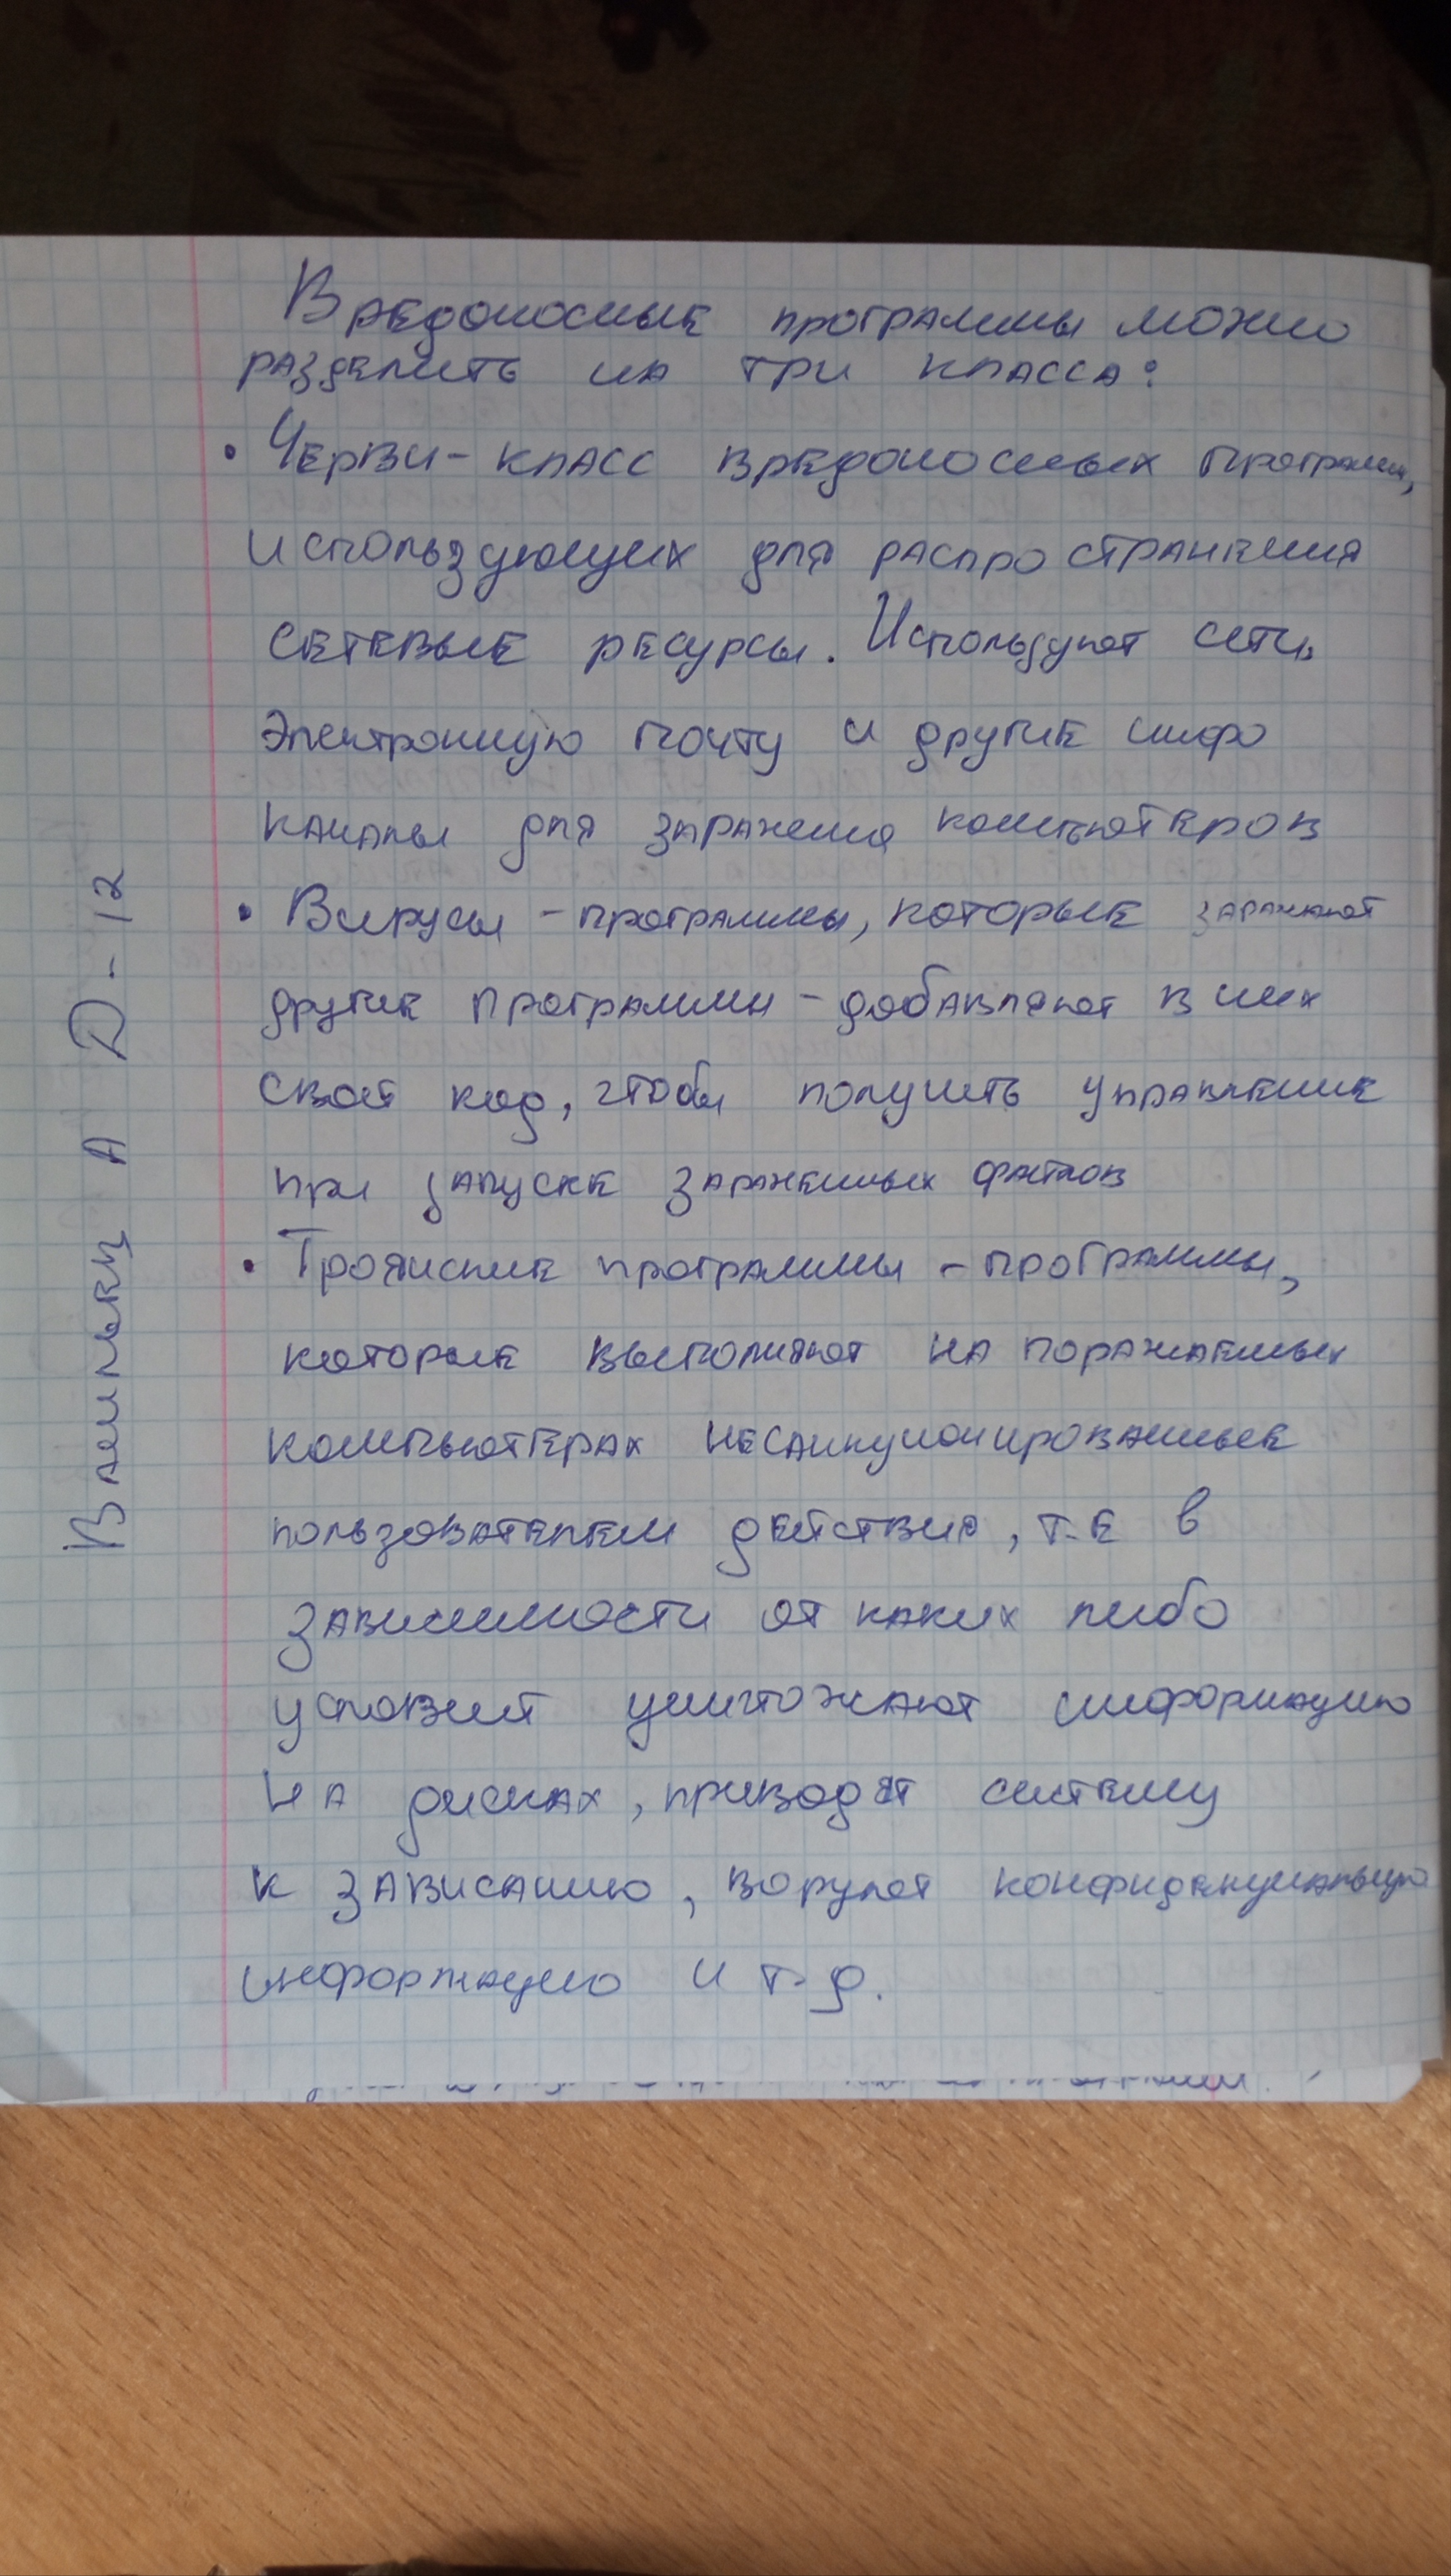 Вредоносные программы можно
разделить на три класса:
• Черви - класс вредоносных программ,
использующих для распространения
сетевые ресурсы. Используют сети,
электронную почту и другие инфо
каналы для заражения компьютеров
• Вирусы - программы, которые заражают
другие программы - добавляют в них
свой код, чтобы получить управление
при запуске зараженных файлов
• Троянские программы - программы,
которые выполняют на поражаемых
компьютерах несанкционированные
пользователем действия, т.е в
зависимости от каких либо
условий уничтожают информацию
на дисках, приводят систему
к зависанию, воруют конфиденциальную
информацию и т.д.
А Д-12